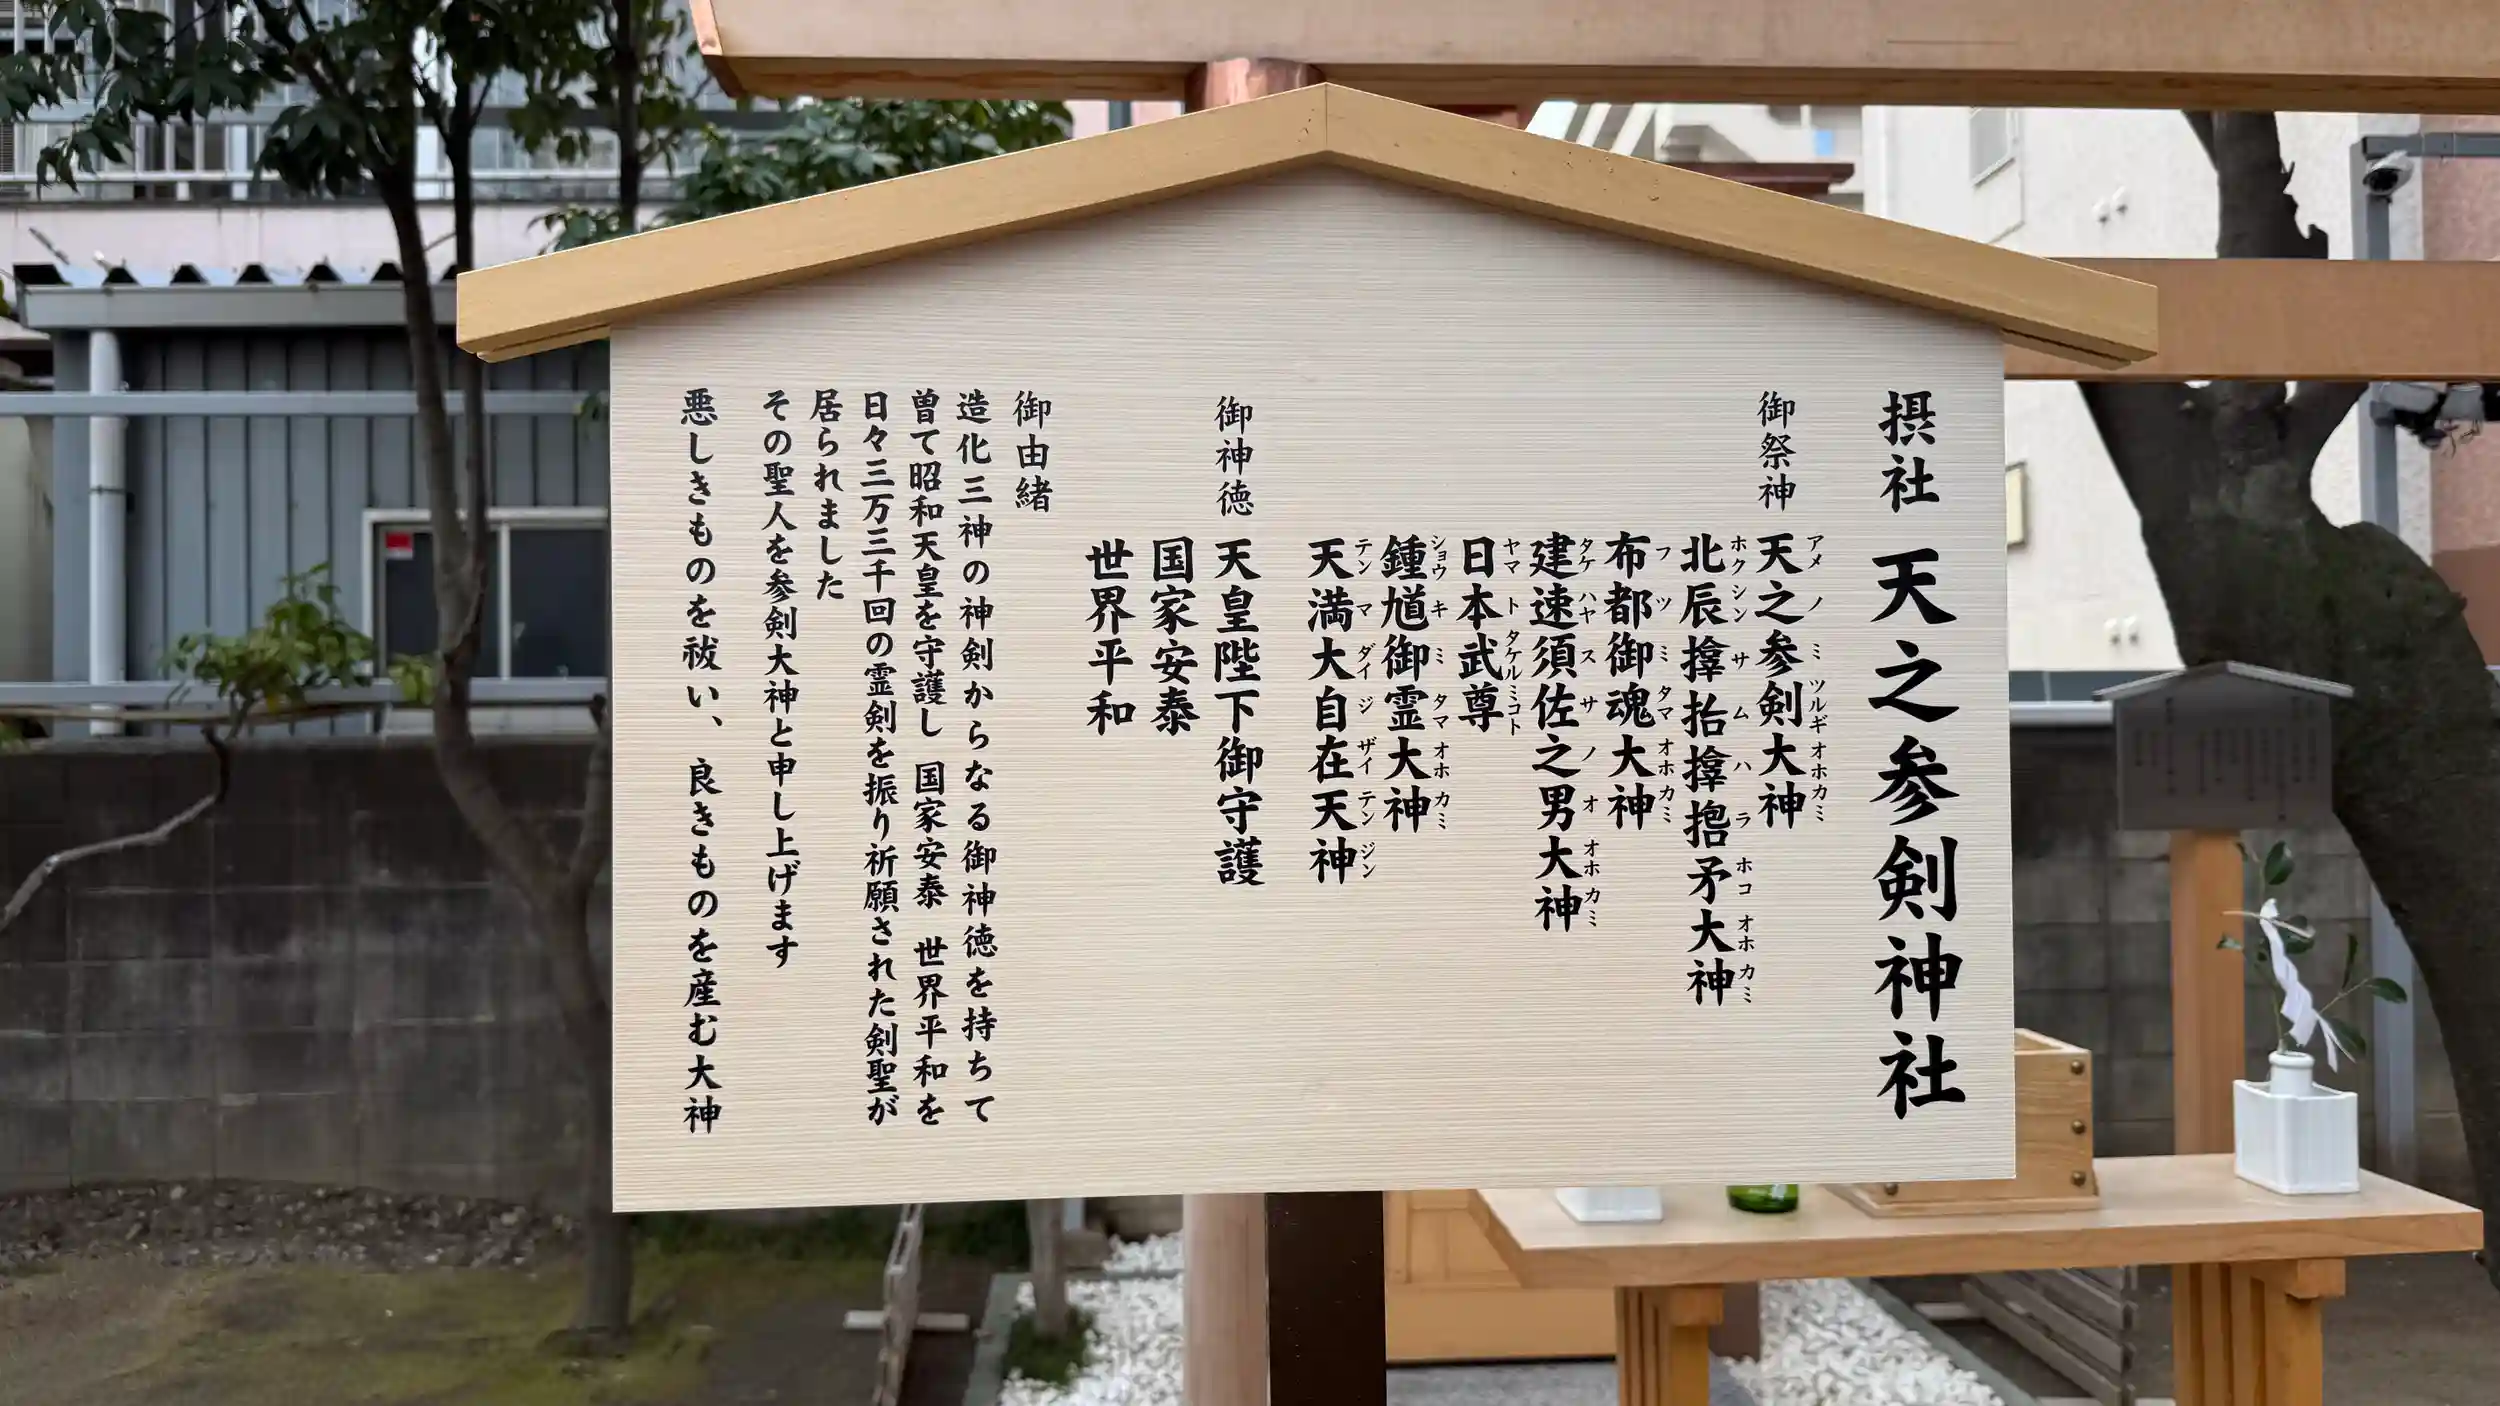 摂社 天之参剣神社
御祭神 天之参剣大神
アメノミツルギオホカミ
北辰撑抬撑𢫫矛大神
ホクシンサムハラホコオホカミ
布都御魂大神
フツミタマオホカミ
建速須佐之男大神
タケハヤスサノオオホカミ
日本武尊
ヤマトタケルミコト
鍾馗御霊大神
ショウキミタマオホカミ
天満大自在天神
テンマダイジザイテンジン
御神徳 天皇陛下御守護
国家安泰
世界平和
御由緒
造化三神の神剣からなる御神徳を持ちて
曽て昭和天皇を守護し 国家安泰 世界平和を
日々三万三千回の霊剣を振り祈願された剣聖が
居られました
その聖人を参剣大神と申し上げます
悪しきものを祓い、良きものを産む大神